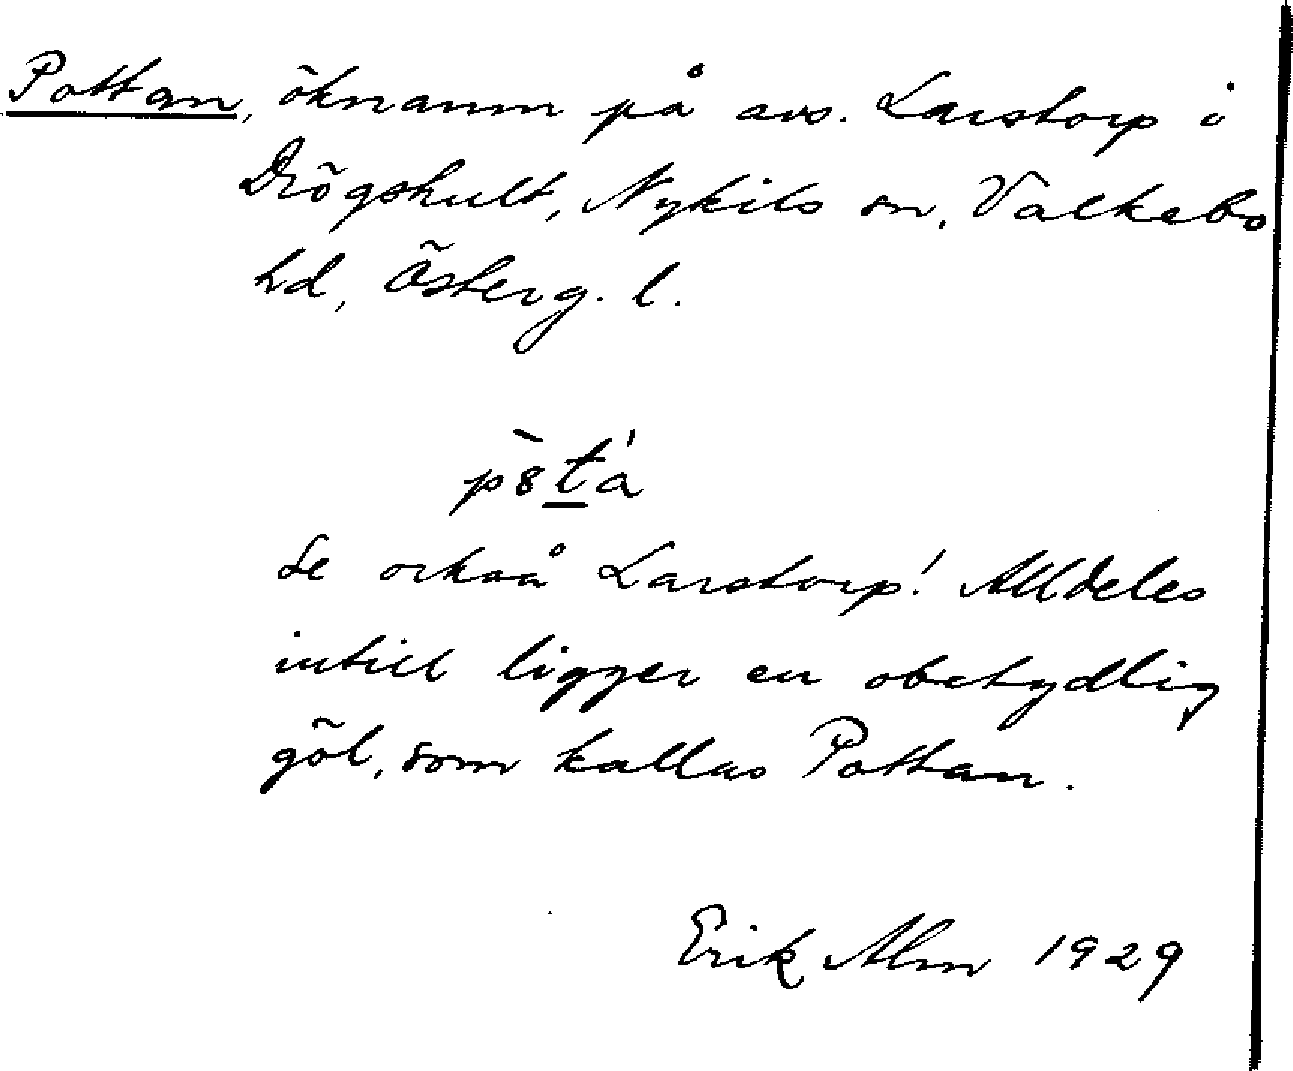 Pottan, öknamn på avs. Larstorp i
Drögshult, Nykils sn, Valkebo
hd, Österg. l.
p8̀tá
Se också Larstorp! Alldeles
intill ligger en obetydlig
göl, som kallas Pottan.
Erik Alm 1929